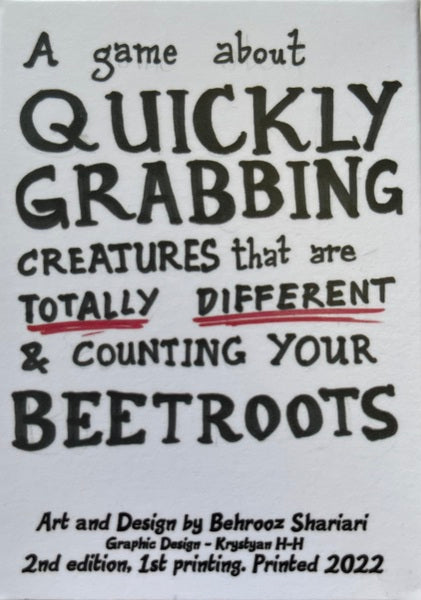 A game about
QUICKLY
GRABBING
CREATURES that are
TOTALLY DIFFERENT
& COUNTING YOUR
BEETROOTS
Art and Design by Behrooz Shariari
Graphic Design - Krystyan H-H
2nd edition, 1st printing. Printed 2022